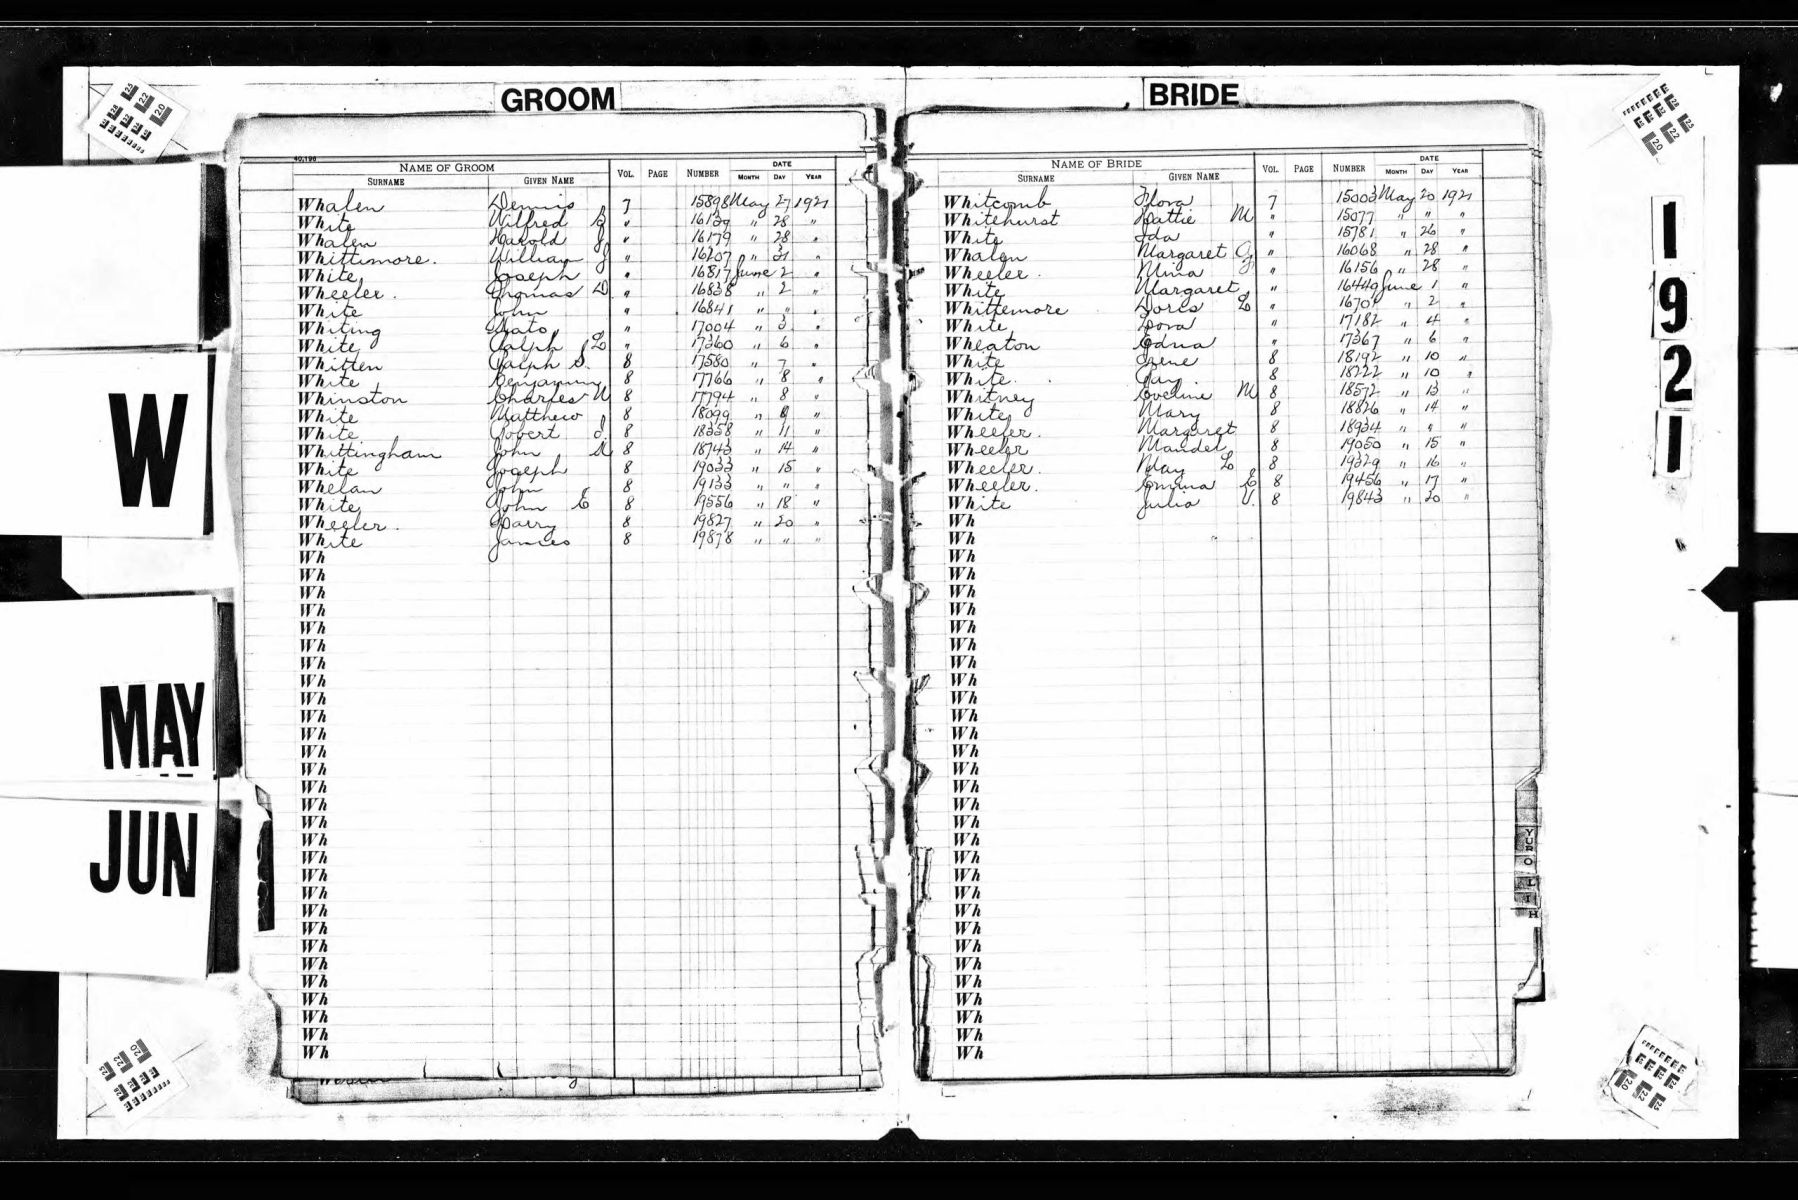 GROOM
40,196
NAME OF GROOM VOL. PAGE NUMBER DATE
SURNAME GIVEN NAME MONTH DAY YEAR
Whalen Dennis 7 15898 May 27 1921
White Wilfred 16139 " 28 "
Whalen Harold J " 16179 " 28 "
Whittimore. William J " 16207 " "
White Joseph " 16817 June 2 "
Wheeler. Thomas D " 16838 " 2 "
White John " 16841 " " "
Whiting " 17004 " 3 "
White Ralph L " 17260 " 6 "
Whitten Ralph S. 8 17580 " 7 "
White Benjamin 8 17766 " 8 "
Whinston Charles 8 17794 " 8 "
White Matthew 8 18099 " "
White Robert J 8 18358 " 11 "
Whittingham John 8 18743 " 14 "
White Joseph 8 19033 " 15 "
Whelan John 8 19133 " " "
White John E 8 19556 " 18 "
Wheeler. Harry 8 19827 " 20 "
White James 8 19878 " " "
Wh
Wh
Wh
Wh
Wh
Wh
Wh
Wh
Wh
Wh
Wh
Wh
Wh
Wh
Wh
Wh
Wh
Wh
Wh
Wh
Wh
Wh
Wh
Wh
Wh
Wh
Wh
Wh
Wh
BRIDE
NAME OF BRIDE VOL. PAGE NUMBER DATE
SURNAME GIVEN NAME MONTH DAY YEAR
Whitcomb Flora 7 15003 May 20 1921
Whitehurst Hattie M " 15077 " " "
White Ida " 15781 " 26 "
Whalen Margaret G " 16068 " 28 "
Wheeler. Mina J " 16156 " 28 "
White Margaret " 16449 June 1 "
Whittemore Doris L " 1670 " 2 "
White Dora " 17182 " 4 "
Wheaton Edna " 17367 " 6 "
White Irene 8 18192 " 10 "
White. 8 18222 " 10 "
Whitney Eveline M 8 18572 " 13 "
White Mary 8 18826 " 14 "
Wheeler. Margaret 8 18934 " " "
Wheeler Maudel 8 19050 " 15 "
Wheeler. May L 8 19329 " 16 "
Wheeler. Emma E 8 19456 " 17 "
White Julia V. 8 19843 " 20 "
Wh
Wh
Wh
Wh
Wh
Wh
Wh
Wh
Wh
Wh
Wh
Wh
Wh
Wh
Wh
Wh
Wh
Wh
Wh
Wh
Wh
Wh
Wh
Wh
Wh
Wh
Wh
Wh
Wh
Wh
Wh
W
MAY
JUN
1921